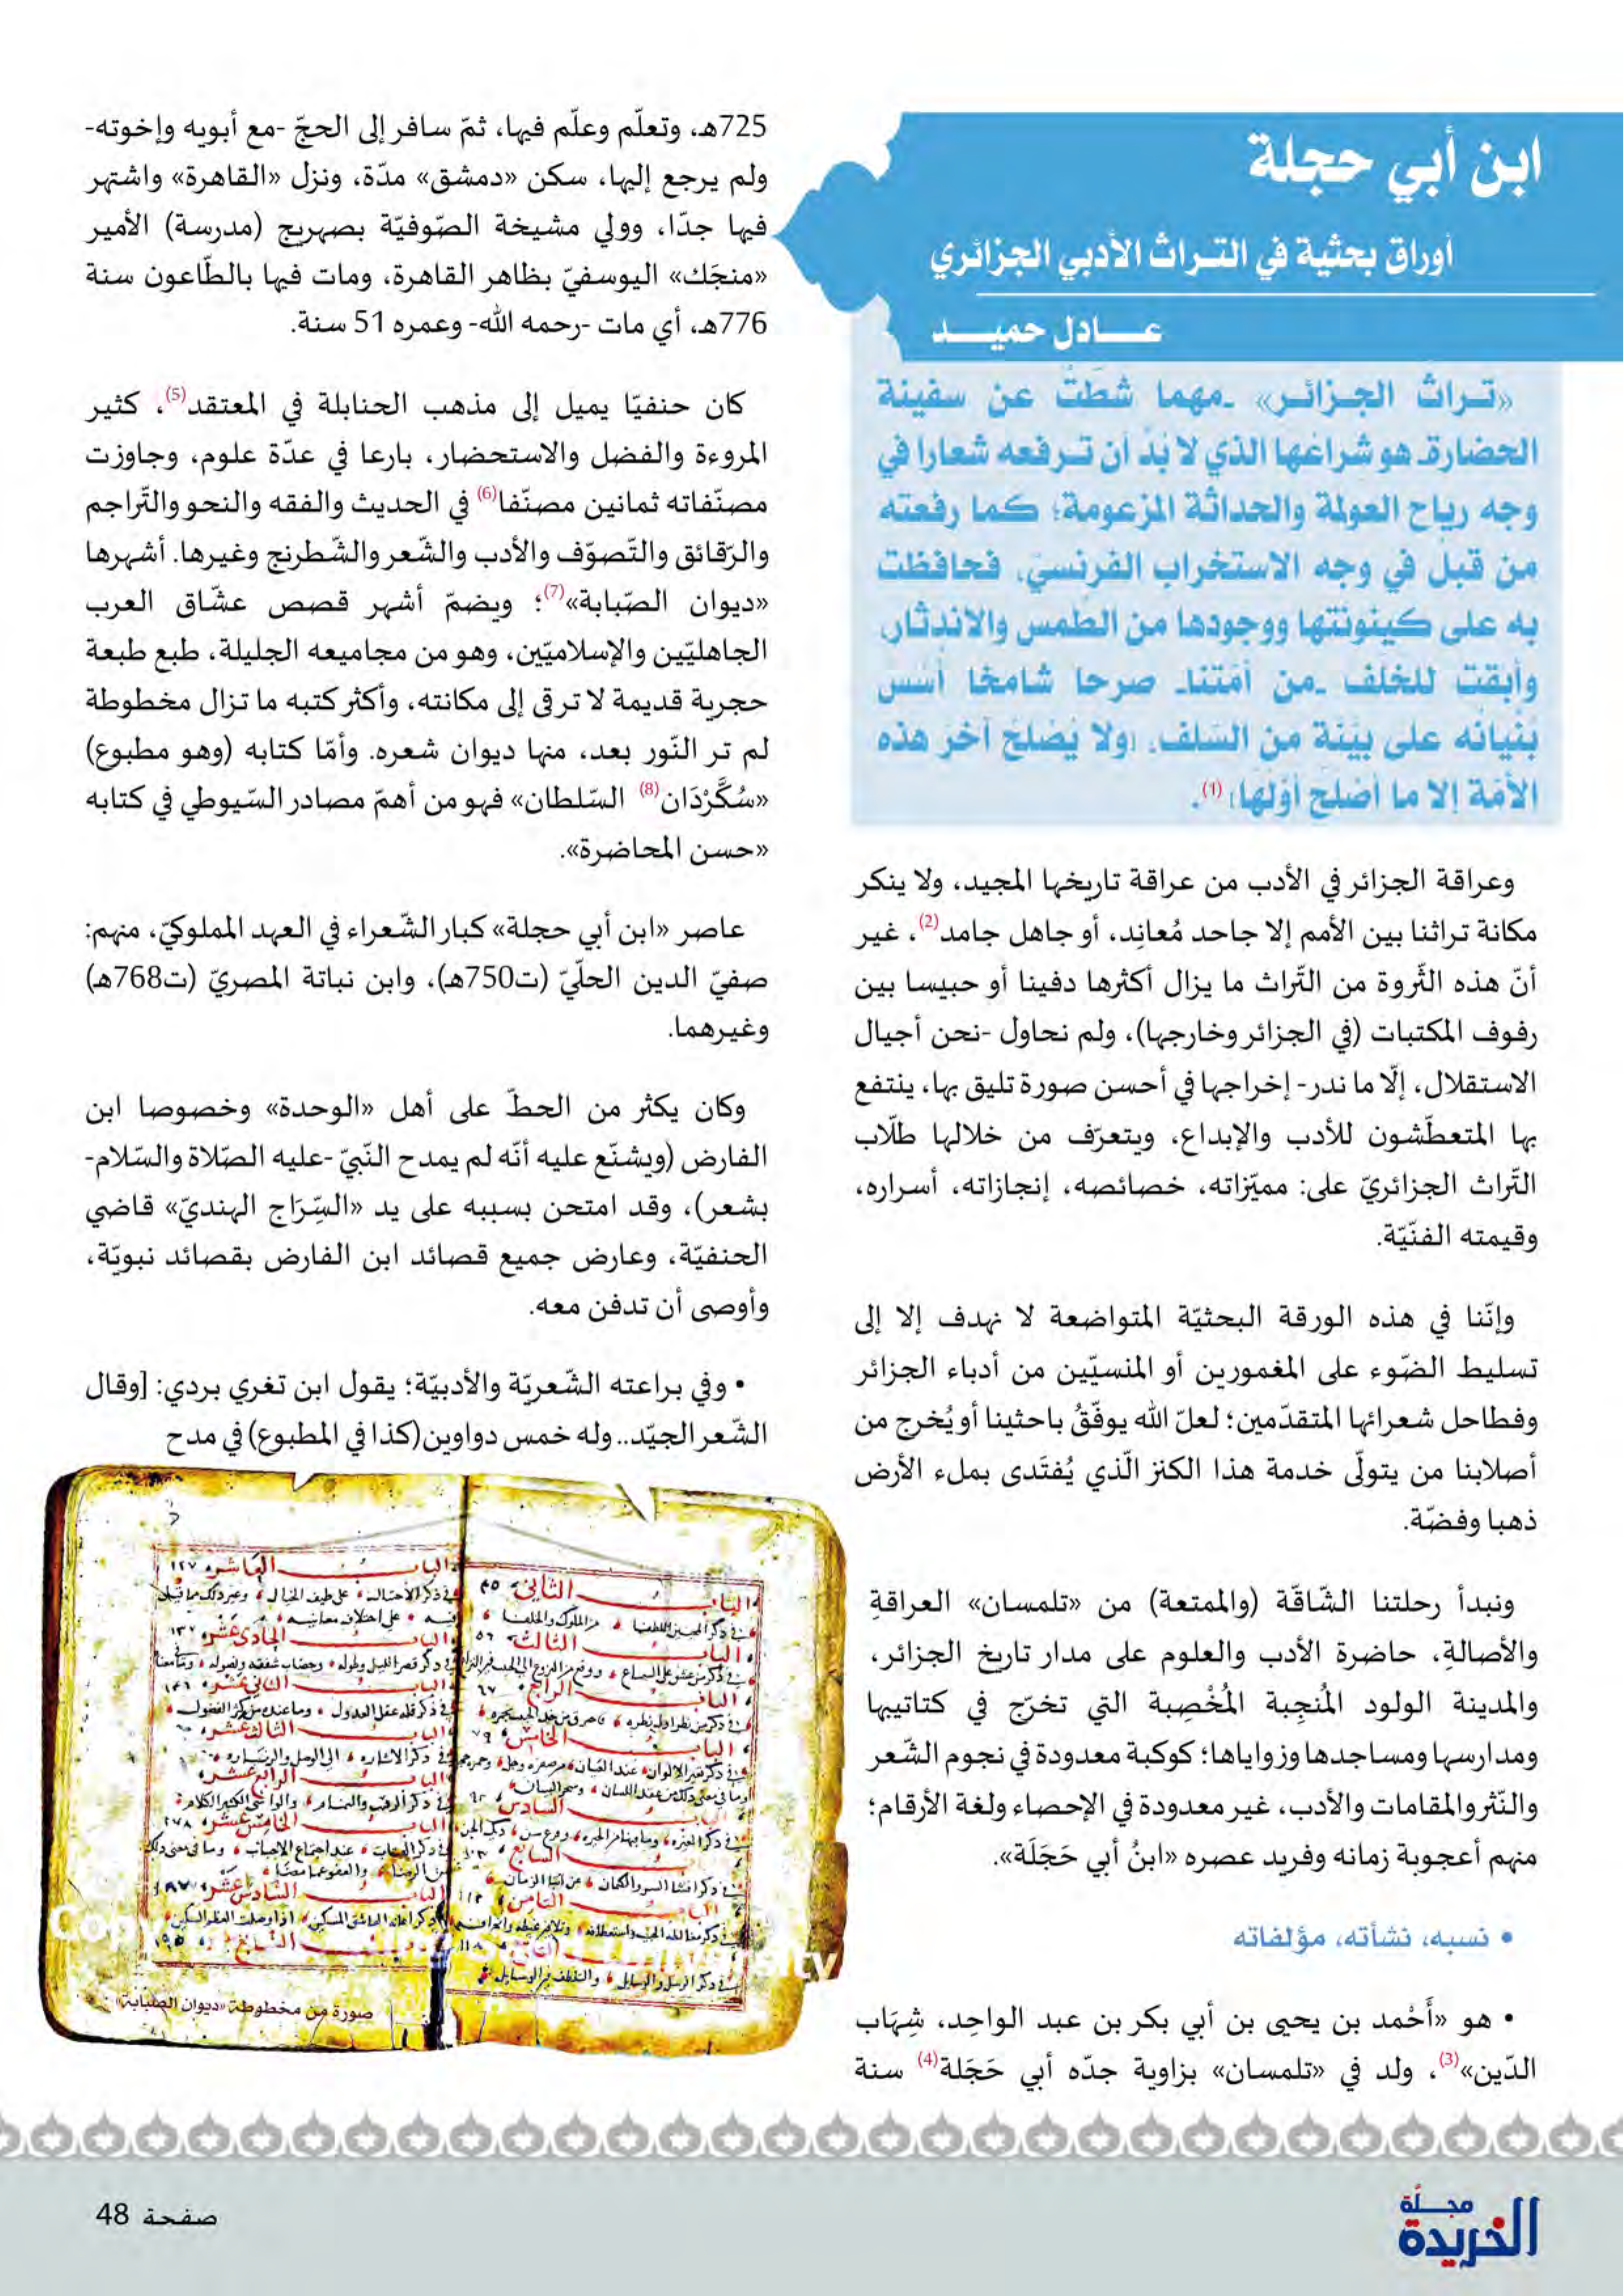 ابن أبي حجلة
أوراق بحثية في التراث الأدبي الجزائري
عادل حميد
«تراث الجزائر» -مهما شطّت عن سفينة
الحضارة- هو شراعها الذي لا بُدّ أن ترفعه شعارا في
وجه رياح العولمة والحداثة المزعومة؛ كما رفعته
من قبل في وجه الاستخراب الفرنسيّ، فحافظت
به على كينونتها ووجودها من الطّمس والاندثار،
وأبقت للخلف -من أمّتنا- صرحا شامخا أُسّس
بُنْيانُه على بيّنة من السّلف، (ولا يَصْلحُ آخرَ هذه
الأمّة إلا ما أصْلحَ أوّلَها) (1).
وعراقة الجزائر في الأدب من عراقة تاريخها المجيد، ولا ينكر
مكانة تراثنا بين الأمم إلا جاحد مُعانِد، أو جاهل جامد(2)، غير
أنّ هذه الثّروة من التّراث ما يزال أكثرها دفينا أو حبيسا بين
رفوف المكتبات (في الجزائر وخارجها)، ولم نحاول -نحن أجيال
الاستقلال، إلّا ما ندر- إخراجها في أحسن صورة تليق بها، ينتفع
بها المتعطّشون للأدب والإبداع، ويتعرّف من خلالها طلّاب
التّراث الجزائريّ على: مميّزاته، خصائصه، إنجازاته، أسراره،
وقيمته الفنّيّة.
وإنّنا في هذه الورقة البحثيّة المتواضعة لا نهدف إلا إلى
تسليط الضّوء على المغمورين أو المنسيّين من أدباء الجزائر
وفطاحل شعرائها المتقدّمين؛ لعلّ الله يوفّقُ باحثينا أو يُخرج من
أصلابنا من يتولّى خدمة هذا الكنز الّذي يُفتَدى بملء الأرض
ذهبا وفضّة.
ونبدأ رحلتنا الشّاقّة (والممتعة) من «تلمسان» العراقةِ
والأصالةِ، حاضرة الأدب والعلوم على مدار تاريخ الجزائر،
والمدينة الولود المُنجِبة المُخْصِبة التي تخرّج في كتاتيبها
ومدارسها ومساجدها وزواياها؛ كوكبة معدودة في نجوم الشّعر
والنّثر والمقامات والأدب، غير معدودة في الإحصاء ولغة الأرقام؛
منهم أعجوبة زمانه وفريد عصره «ابنُ أبي حَجَلَة».
• نسبه، نشأته، مؤلفاته
• هو «أَحْمد بن يحيى بن أبي بكر بن عبد الواحِد، شِهَاب
الدّين»(3)، ولد في «تلمسان» بزاوية جدّه أبي حَجَلة(4) سنة
725هـ، وتعلّم وعلّم فيها، ثمّ سافر إلى الحجّ -مع أبويه وإخوته-
ولم يرجع إليها، سكن «دمشق» مدّة، ونزل «القاهرة» واشتهر
فيها جدّا، وولي مشيخة الصّوفيّة بصهريج (مدرسة) الأمير
«منجَك» اليوسفيّ بظاهر القاهرة، ومات فيها بالطّاعون سنة
776هـ، أي مات -رحمه الله- وعمره 51 سنة.
كان حنفيّا يميل إلى مذهب الحنابلة في المعتقد(5)، كثير
المروءة والفضل والاستحضار، بارعا في عدّة علوم، وجاوزت
مصنّفاته ثمانين مصنّفا(6) في الحديث والفقه والنحو والتّراجم
والرّقائق والتّصوّف والأدب والشّعر والشّطرنج وغيرها. أشهرها
«ديوان الصّبابة»(7)؛ ويضمّ أشهر قصص عشّاق العرب
الجاهليّين والإسلاميّين، وهو من مجاميعه الجليلة، طبع طبعة
حجرية قديمة لا ترقى إلى مكانته، وأكثر كتبه ما تزال مخطوطة
لم تر النّور بعد، منها ديوان شعره. وأمّا كتابه (وهو مطبوع)
«سُكَّرْدَان(8) السّلطان» فهو من أهمّ مصادر السّيوطي في كتابه
«حسن المحاضرة».
عاصر «ابن أبي حجلة» كبار الشّعراء في العهد المملوكيّ، منهم:
صفيّ الدين الحلّيّ (ت750هـ)، وابن نباتة المصريّ (ت768هـ)
وغيرهما.
وكان يكثر من الحطّ على أهل «الوحدة» وخصوصا ابن
الفارض (ويشنّع عليه أنّه لم يمدح النّبيّ -عليه الصّلاة والسّلام-
بشعر)، وقد امتحن بسببه على يد «السِّرَاج الهنديّ» قاضي
الحنفيّة، وعارض جميع قصائد ابن الفارض بقصائد نبويّة،
وأوصى أن تدفن معه.
• وفي براعته الشّعريّة والأدبيّة؛ يقول ابن تغري بردي: [وقال
الشّعر الجيّد.. وله خمس دواوين(كذا في المطبوع) في مدح
صورة من مخطوطة «ديوان الصبابة»
مجلّة
الخريدة
صفحة 48